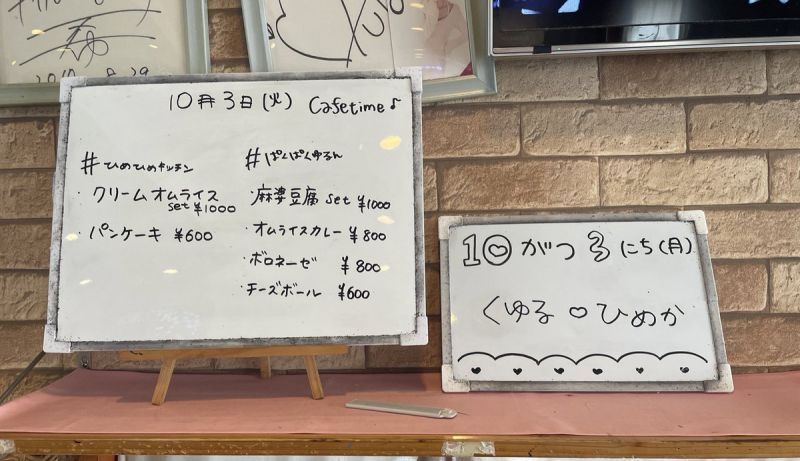 10月3日(火) Cafetime♪
#ひめひめキッチン
・クリームオムライス
set ¥1000
・パンケーキ ¥600
#ぱくぱくゆるん
・麻婆豆腐 set ¥1000
・オムライスカレー ¥800
・ボロネーゼ ¥800
・チーズボール ¥600
10がつ3にち(月)
くゆる♡ひめか